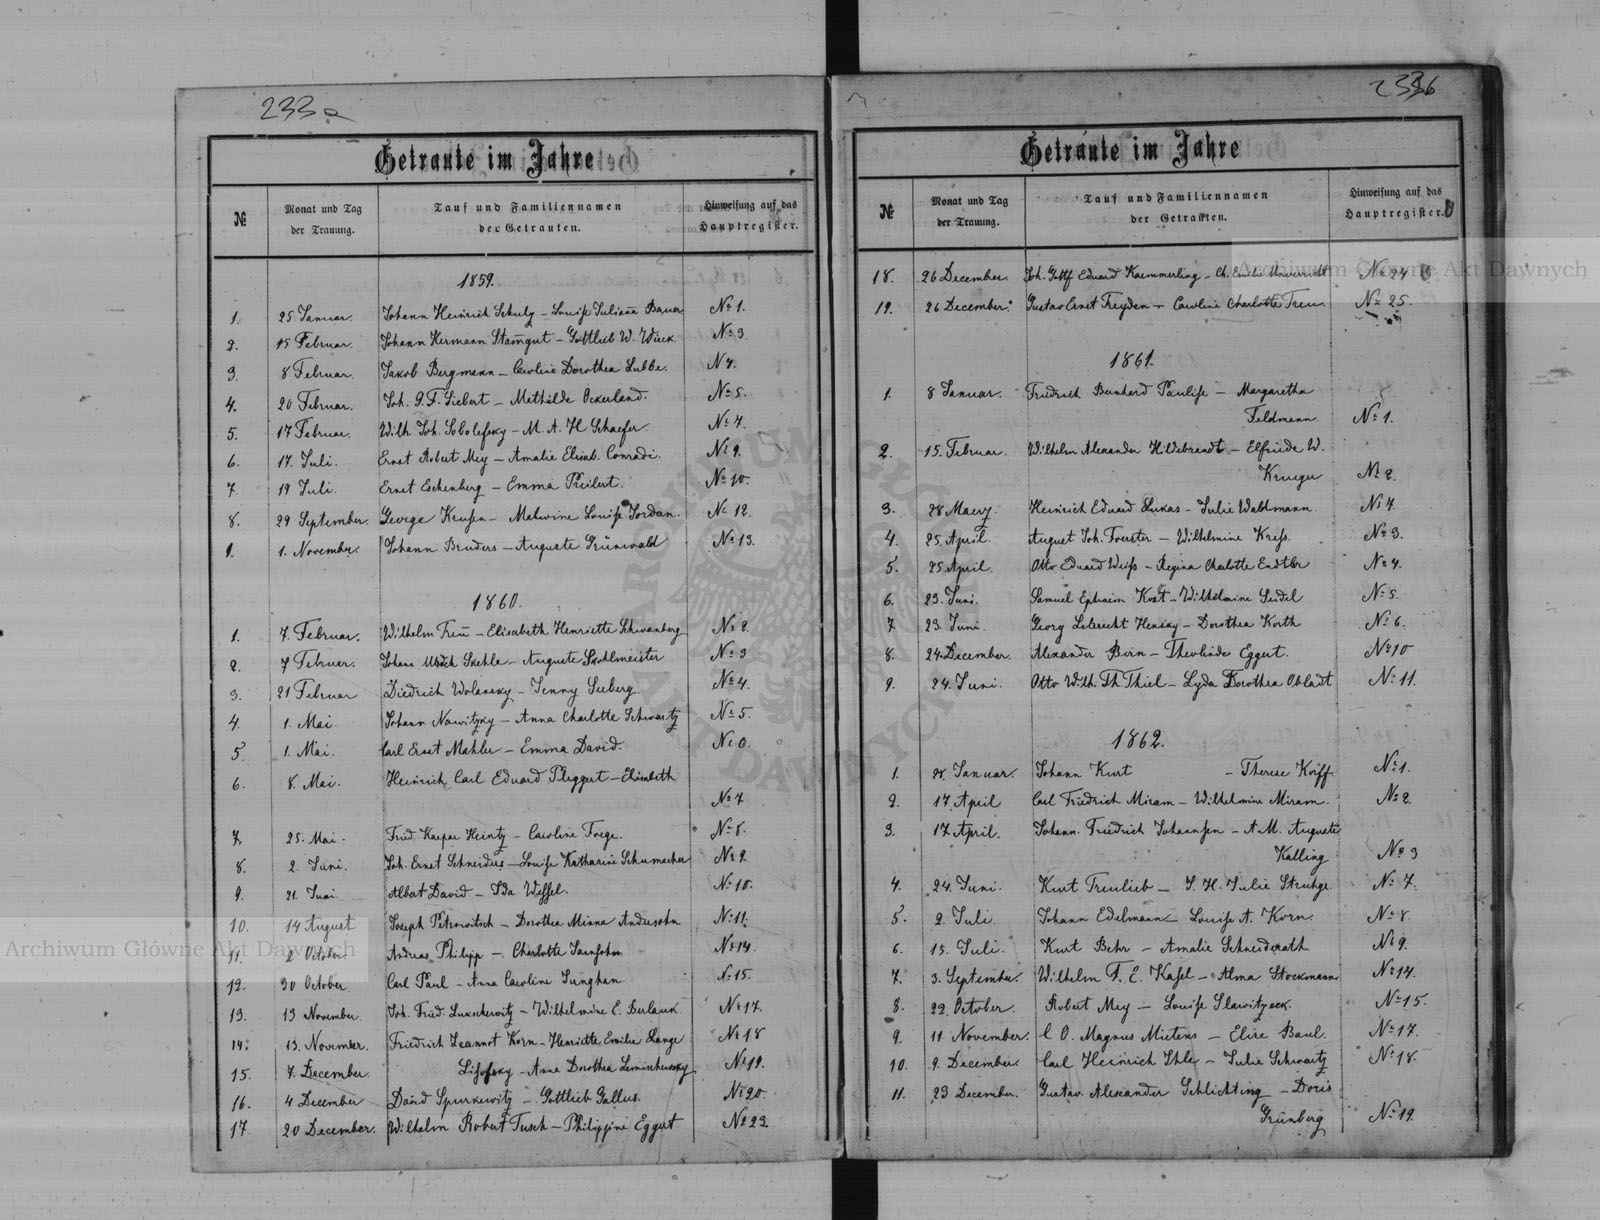 233a
Getraute im Jahre
№
Monat und Tag
der Trauung.
Tauf und Familiennamen
der Getrauten.
Hinweisung auf das
Hauptregister.
1859.
1. 25 Januar. Johann Heinrich Schulz – Louise Juliana Bauer № 1.
2. 15 Februar. Johann Hermann Stamgut – Gottlieb W. Wieck № 3
3. 8 Februar. Jakob Bergmann – Caroline Dorothea Lubbe. № 4.
4. 20 Februar. Joh. G. F. Siebert – Mathilde Ockerland. № 5.
5. 17 Februar. Wilh. Joh. Sobolefsky – M. A. H Schaefer. № 7.
6. 17. Juli. Ernst Robert Mey – Amalie Elisab. Conradi. № 9.
7 19 Juli. Ernst Eschenberg – Emma Preilert. № 10.
8. 29 September. George Krusen – Malwine Louise Jordan. № 12.
9. 1. November. Johann Bruders – Auguste Grünwald № 13.
1860.
1. 7. Februar. Wilhelm Treu – Elisabeth Henriette Schwanberg № 2.
2. 7 Februar. Johann – Auguste Stahlmeister № 3
3. 21 Februar Diedrich Wolansky – Jenny Seeberg. № 4.
4. 1. Mai Johann Nawitzky – Anna Charlotte Schwartz № 5.
5. 1. Mai. Carl Ernst Mahler – Emma David.
6. 8. Mai. Heinrich Carl Eduard Pliggert – Elisabeth
№ 7
7. 25. Mai. Fried. Kaspar Heintz – Caroline Foege. № 8.
8. 2. Juni. Joh. Ernst Schneiders – Louise Katharine Schumacher № 9.
9. 21. Juni. Albert David – Ida Wessel. № 10.
10. 14 August Joseph Petrowitsch – Dorothea Minna Andersohn № 11.
11. 2 October. Andreas Philipp – Charlotte № 14.
12. 30 October Carl Paul – Anna Caroline Junghan. № 15.
13. 13 November. Joh. Fried. Luxscherwitz – Wilhelmine E. Berlauk. № 17.
14. 13. November. Friedrich Leannot Korn – Henriette Emilie Lange № 18
15. 7. December. – Anna Dorothea № 19.
16. 4 December David Spurkewitz – Gottlieb Gallus. № 20.
17. 20 December. Wilhelm Robert Tusch – Philippine Eggert № 23.
233b
Getraute im Jahre
№
Monat und Tag
der Trauung.
Tauf und Familiennamen
der Getrauten.
Hinweisung auf das
Hauptregister.
18. 26 December. Joh. Gottf Eduard Kaemmerling – Ch. Emilie Unverricht № 24
19. 26 December. Gustav Ernst Freyden – Caroline Charlotte Treu. № 25.
1861.
1. 8 Januar. Friedrich Bernhard Paulise – Margaretha
Feldmann № 1.
2. 15. Februar. Wilhelm Alexander Hildebrandt – Elfriede W.
Krueger № 2.
3. 28 Maerz. Heinrich Eduard Lukas – Julie Waldmann. № 7.
4. 25. April August Joh. Foerster – Wilhelmine Kress. № 3.
5. 25 April. Otto Eduard Weiss – Regina Charlotte Endtler № 4.
6. 23. Juni. Samuel Ephraim Kost – Wilhelmine Seidel № 5.
7 23. Juni. Georg Leberecht Hensky – Dorothea Korth № 6.
8. 24. December. Alexander Birn – Theolinde Eggert. № 10
9. 24. Juni. Otto Wilh. Th Thiel – Lyda Dorothea Obladt № 11.
1862.
1. 28. Januar. Johann Kurt – Therese Korff № 1.
2. 17 April Carl Friedrich Miram – Wilhelmine Miram. № 2.
3. 17 April. Johann Friedrich Johannsen – A. M. Auguste
Kalling № 3
4. 24. Juni. Kurt Treulieb – J. H. Julie Struhge № 7.
5. 2. Juli. Johann Edelmann – Louise A. Korn. № 8
6. 15. Juli. Kurt Behr – Amalie Schneiderath № 9.
7. 3. September. Wilhelm F. E. Kasel – Alma Stockmann № 14.
8. 22. October. Robert Mey – Louise Slawitzeck. № 15.
9. 11 November. C O. Magnus Mietens – Elise Baul. № 17.
10. 9. December. Carl Heinrich Ihle – Julie Schwartz № 18.
11. 23 December. Gustav Alexander Schlichting – Doris
Grünberg № 19.
Archiwum Główne Akt Dawnych
Archiwum Główne Akt Dawnych
ARCHIWUM GŁÓWNE AKT DAWNYCH